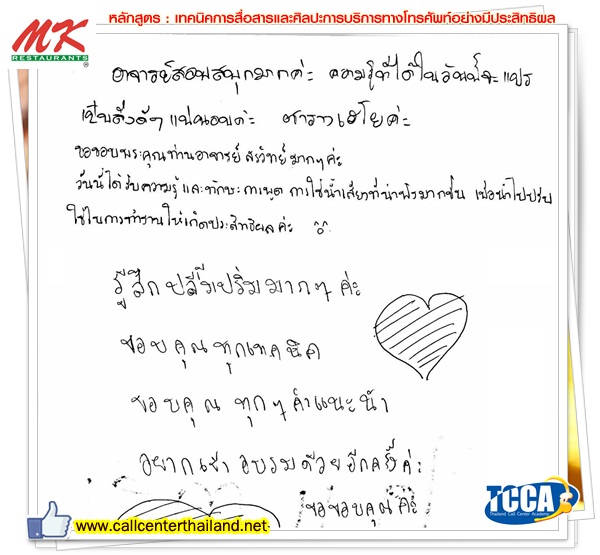 หลักสูตร : เทคนิคการสื่อสารและศิลปะการบริการทางโทรศัพท์อย่างมีประสิทธิผล
MK
RESTAURANTS
อาจารย์สอนสนุกมากค่ะ ความรู้ที่ได้ในวันนี้จะแปร
เป็นสิ่งดีๆ แน่นอนค่ะ
ขอขอบพระคุณท่านอาจารย์ สรวิทย์ มากๆ ค่ะ
วันนี้ได้รับความรู้ และทักษะ การพูด การใช้น้ำเสียงที่น่าฟังมากขึ้น เพื่อนำไปปรับ
ใช้ในการทำงานให้เกิดประสิทธิผลค่ะ
รู้สึกปลื้มปริ่มมากๆ ค่ะ
ขอบคุณทุกเทคนิค
ขอบคุณ ทุกๆ คำแนะนำ
อยากเข้า อบรมด้วยอีกครั้งค่ะ
ขอขอบคุณค่ะ
www.callcenterthailand.net
TCCA
Thailand Call Center Academy